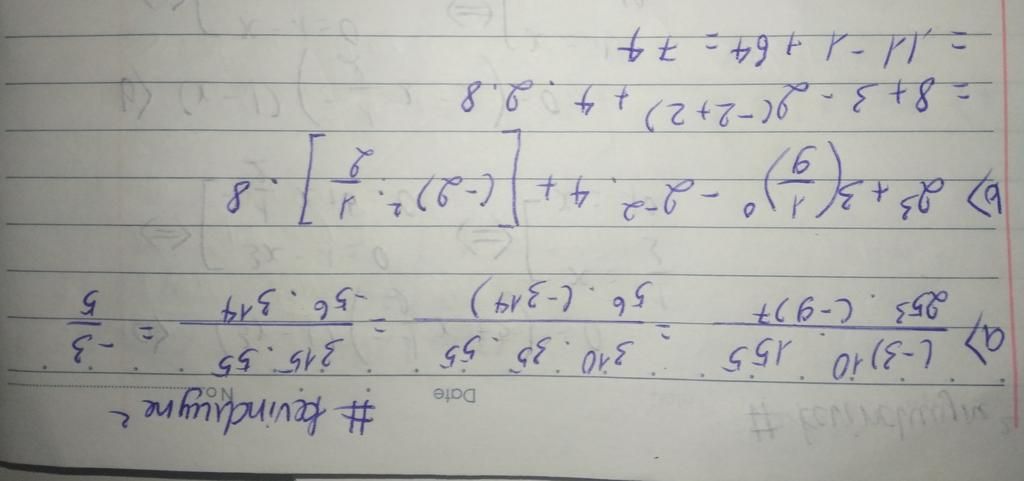 Date No.
# kevinduyne²
a) (-3)¹⁰ . 15⁵ / 25³ . (-9)⁷ = 3¹⁰ . 3⁵ . 5⁵ / 5⁶ . (-3¹⁴) = 3¹⁵ . 5⁵ / -5⁶ . 3¹⁴ = -3 / 5
b) 2³ + 3(1/9)⁰ - 2⁻² . 4 + [(-2)² : 1/2] . 8
= 8 + 3 - 2⁽⁻²⁺²⁾ + 4 . 2 . 8
= 11 - 1 + 64 = 74